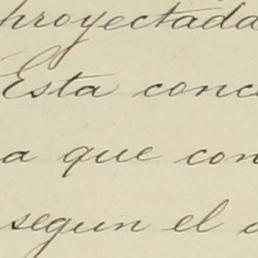 proyectada
Esta conc
a que con
segun el